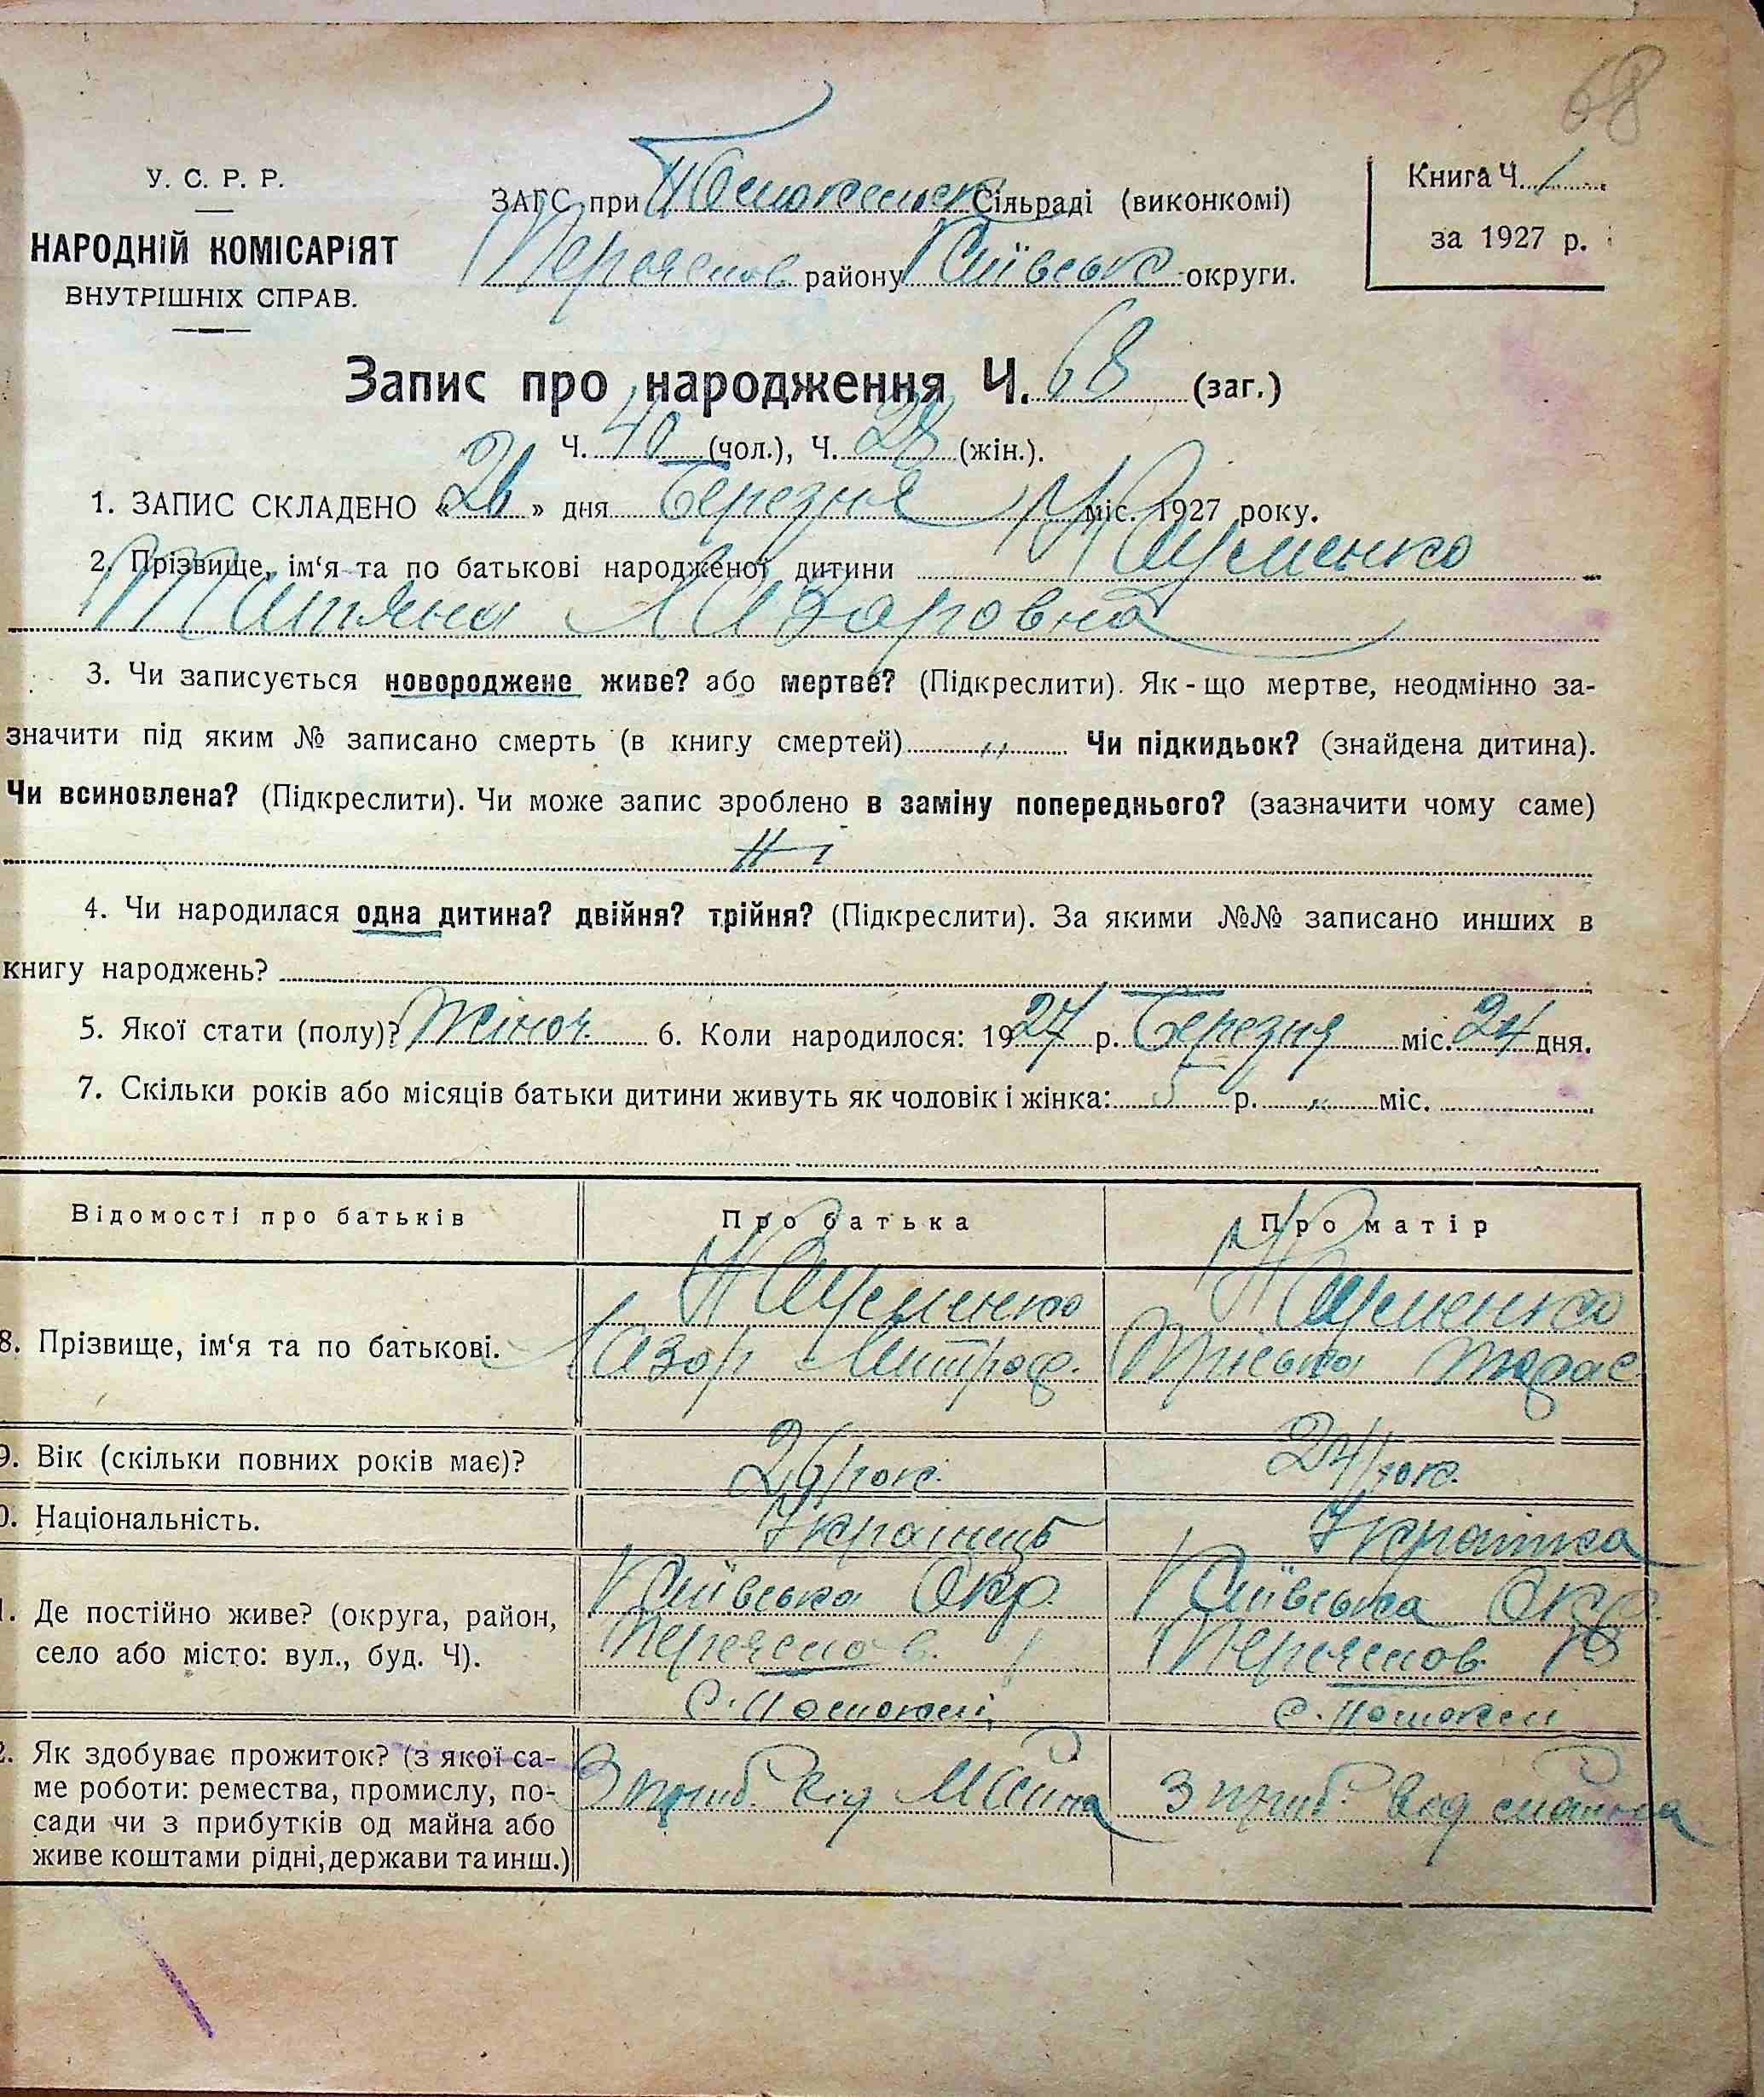 68
У. С. Р. Р.
НАРОДНІЙ КОМІСАРІЯТ
ВНУТРІШНІХ СПРАВ.
ЗАГС при Сільраді (виконкомі)
Переяслов району Київськ округи.
Книга Ч. 1
за 1927 р.
Запис про народження Ч. 68 (заг.)
Ч. 40 (чол.), Ч. 28 (жін.).
1. ЗАПИС СКЛАДЕНО «26» дня Березня міс. 1927 року.
2. Прізвище, ім‘я та по батькові народженої дитини Науменко
Татяна Лазаровна
3. Чи записується новороджене живе? або мертве? (Підкреслити). Як-що мертве, неодмінно за-
значити під яким № записано смерть (в книгу смертей) „ Чи підкидьок? (знайдена дитина).
Чи всиновлена? (Підкреслити). Чи може запис зроблено в заміну попереднього? (зазначити чому саме)
Ні
4. Чи народилася одна дитина? двійня? трійня? (Підкреслити). За якими №№ записано инших в
книгу народжень?
5. Якої стати (полу)? Жіноч. 6. Коли народилося: 1927 р. Березня міс. 24 дня.
7. Скільки років або місяців батьки дитини живуть як чоловік і жінка: 5 р. „ міс.
Відомості про батьків Про батька Про матір
8. Прізвище, ім‘я та по батькові. Науменко Науменко
Лазор Митроф. Пріська Тарас.
9. Вік (скільки повних років має)? 26 рок. 24 рок.
0. Національність. Українець Українка
1. Де постійно живе? (округа, район, Київська Окр. Київська Окр.
село або місто: вул., буд. Ч). Переяслов. Переяслов. Р
2. Як здобуває прожиток? (з якої са-
ме роботи: ремества, промислу, по- З приб. від Майна З приб. від майна
сади чи з прибутків од майна або
живе коштами рідні, держави та инш.)